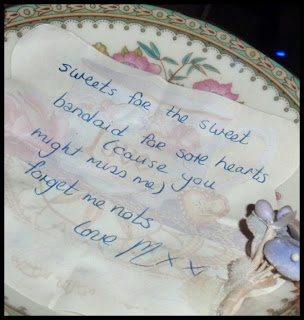 sweets for the sweet
bandaid for sore hearts
(cause you
might miss me)
forget me nots
Love M x x